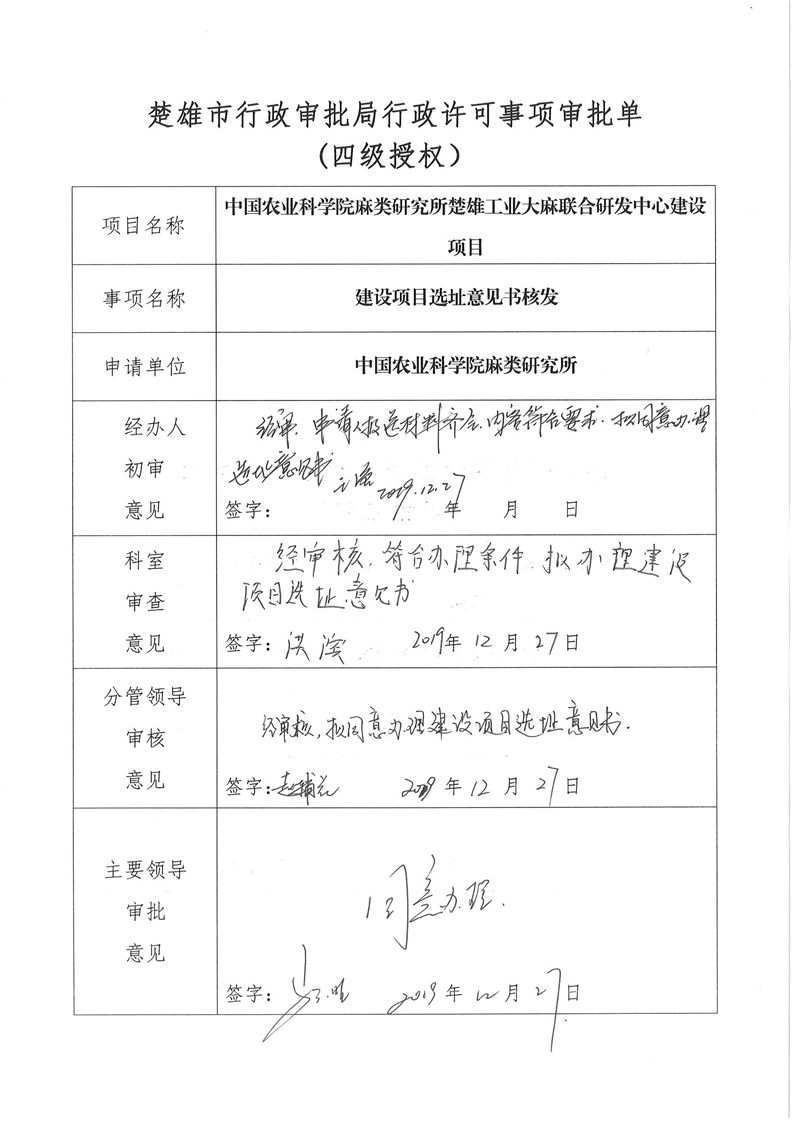 楚雄市行政审批局行政许可事项审批单
(四级授权)
项目名称
中国农业科学院麻类研究所楚雄工业大麻联合研发中心建设
项目
事项名称
建设项目选址意见书核发
申请单位
中国农业科学院麻类研究所
经办人
初审
意见
经审，申请人报送材料齐全，内容符合要求，拟同意办理
选址意见书
2019.12.27
签字： 年 月 日
科室
审查
意见
经审核，符合办理条件，拟办理建设
项目选址意见书
签字：洪滨 2019年12月27日
分管领导
审核
意见
经审核，拟同意办理建设项目选址意见书.
签字： 2019年12月27日
主要领导
审批
意见
同意办理.
签字： 2019年12月27日